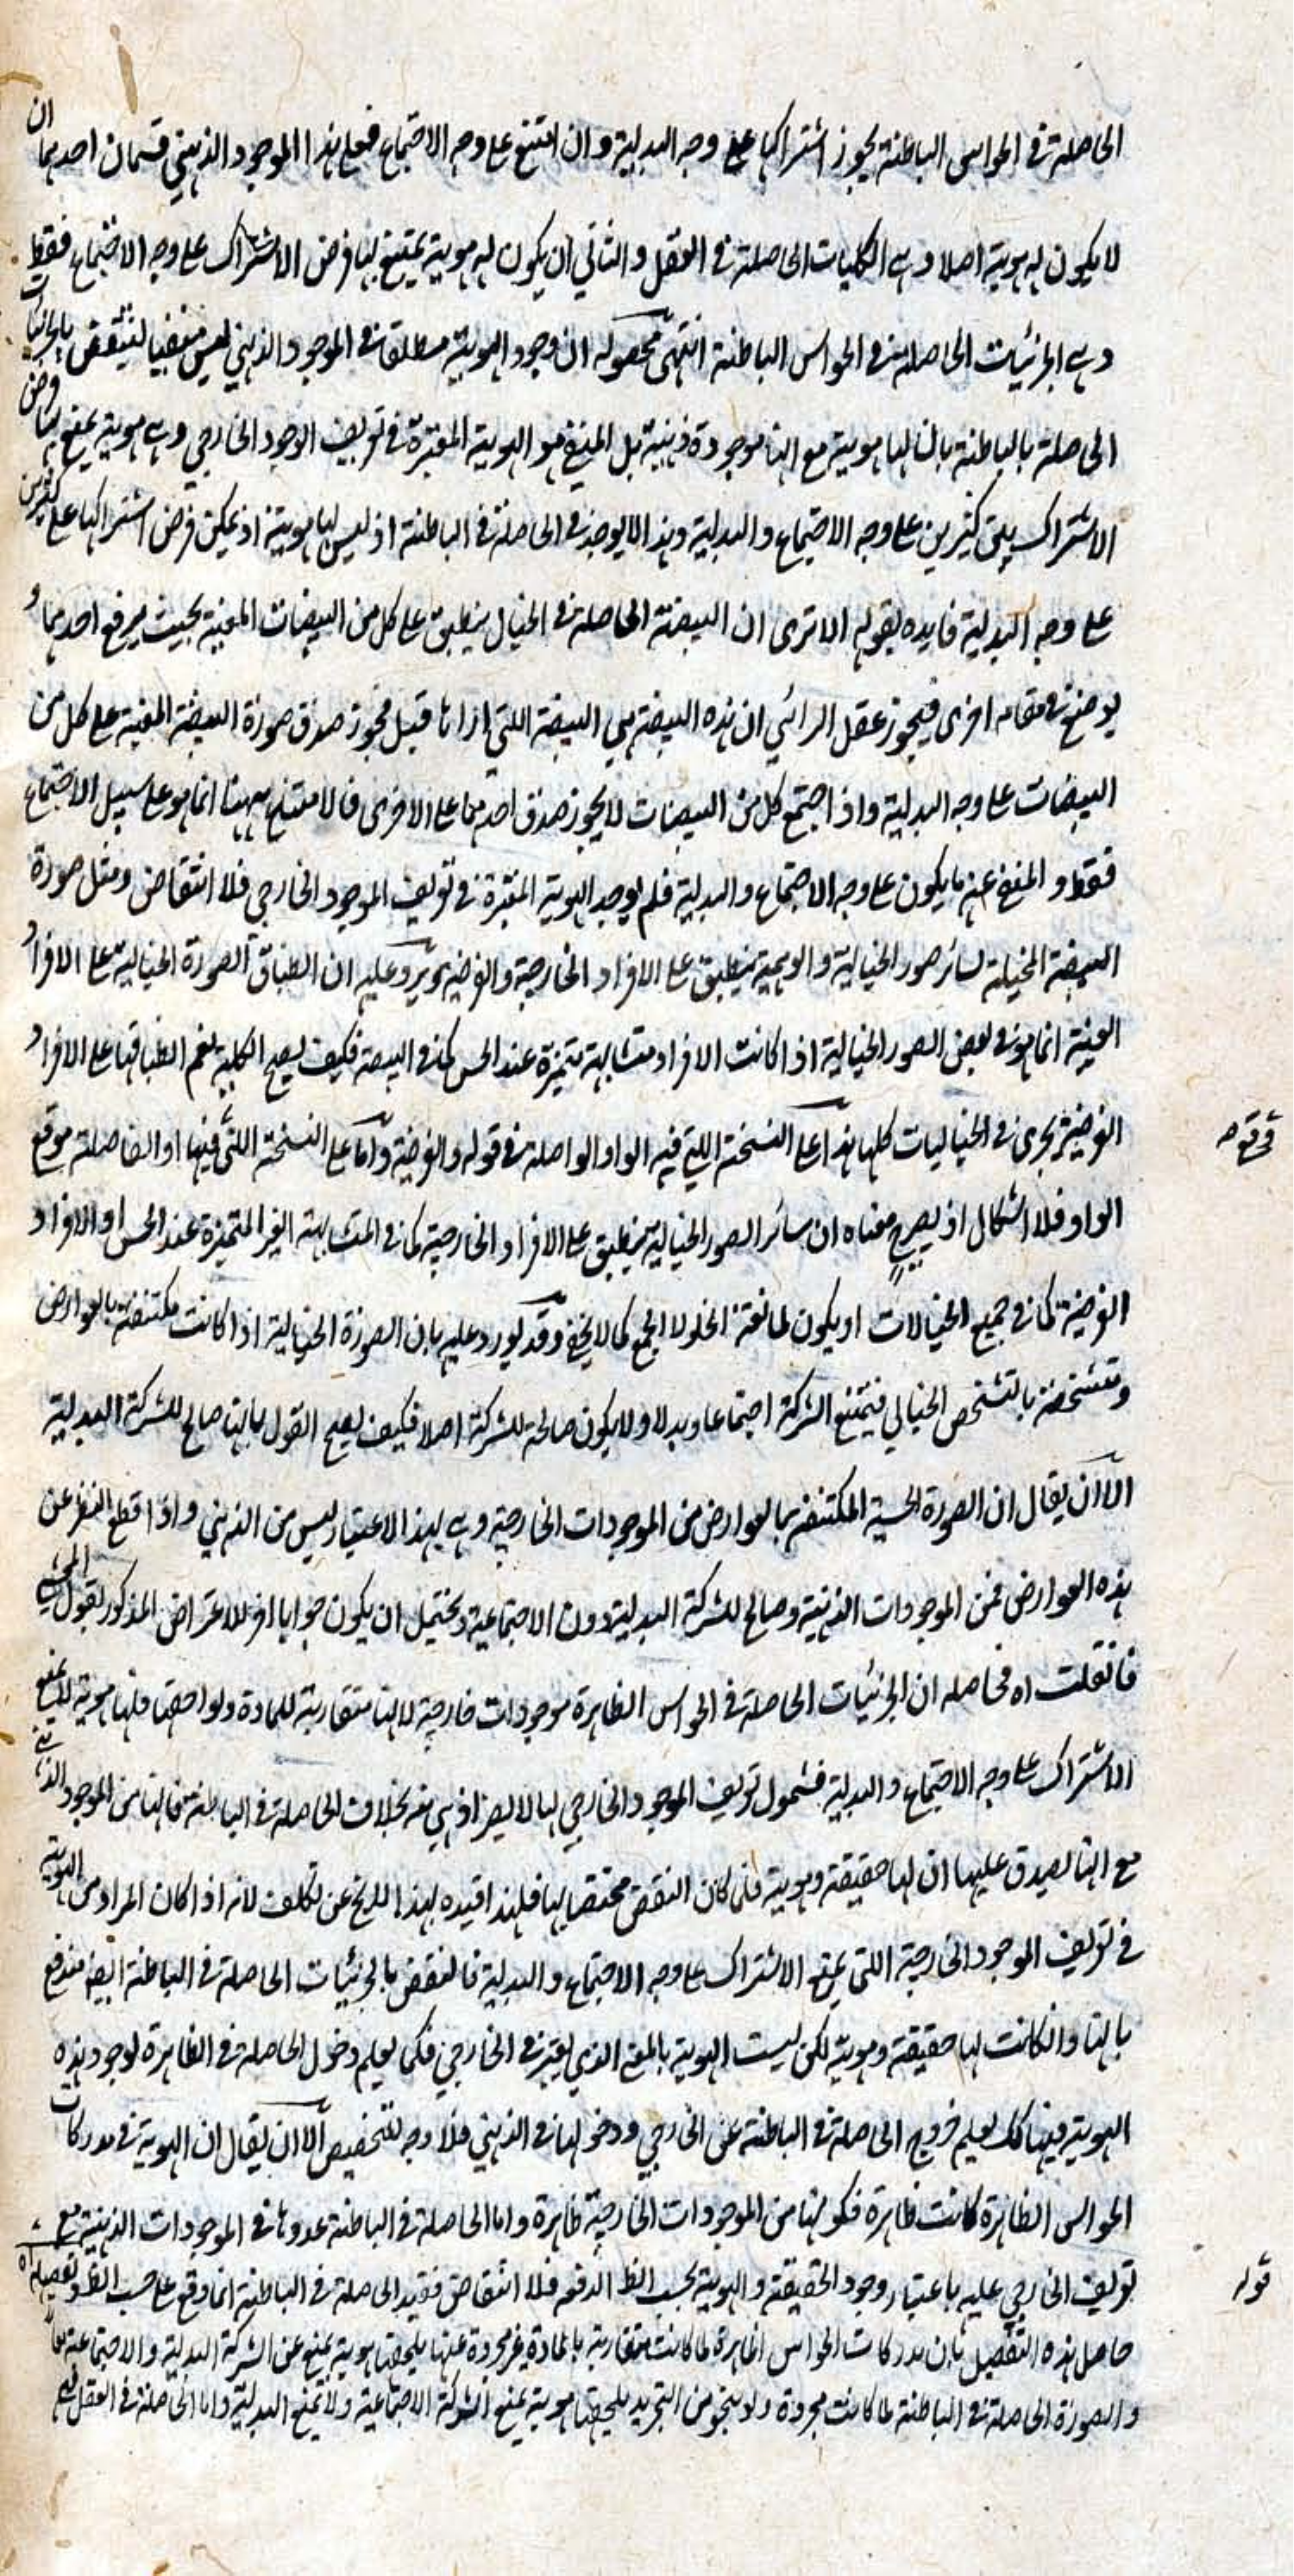 الحاصلة في الحواس الباطنة يجوز اشتراكها على وجه البدلية وان امتنع على وجه الاجتماع فعلى هذا الموجود الذهني قسمان احدهما ان
لا يكون له هوية اصلا وهي الكليات الحاصلة في العقل والثاني ان يكون له هوية يمتنع بها فرض الاشتراك على وجه الاجتماع فقط
وهي الجزئيات الحاصلة في الحواس الباطنة انتهى محصوله ان وجود الهوية مطلقا في الموجود الذهني ليس منفيا لينتقض بالجزئيات
الحاصلة بالباطنة بانها لها هوية مع انها موجودة ذهنية بل المنفي هو الهوية المعتبرة في تعريف الوجود الخارجي وهي هوية يمنع بها فرض
الاشتراك بين كثيرين على وجه الاجتماع والبدلية وهذا لا يوجد في الحاصلة في الباطنة اذ ليس لها هوية اذ يمكن فرض اشتراكها على كثيرين
على وجه البدلية فايده بقوله الا ترى ان البيضة الحاصلة في الخيال ينطبق على كل من البيضات المعينة بحيث يرفع احدهما و
يوضع في مقامه اخرى فيجوز عقل الرائي ان هذه البيضة هي البيضة اللتي اراها قبل فيجوز صدق صورة البيضة المعينة على كل من
البيضات على وجه البدلية واذ اجتمع كل من البيضات لا يجوز صدق احدهما على الاخرى فالامتناع ههنا انما هو على سبيل الاجتماع
فقط والمنفي عنه ما يكون على وجه الاجتماع والبدلية فلم يوجد الهوية المعتبرة في تعريف الموجود الخارجي فلا انتقاض ومثل صورة
البيضة المخيلة سائر صور الخيالية والوهمية ينطبق على الافراد الخارجية والفرضية ويرد عليه ان انطباق الصورة الخيالية على الافراد
العينية انما هو في بعض الصور الخيالية اذا كانت الافراد متشابهة متميزة عند الحس كما في البيضة فكيف يصح الكلية نعم انطباقها على الافراد
الفرضية يجري في الخياليات كلها هذا على النسخة اللتي فيه الواو الواصلة في قوله والفرضية واما على النسخة اللتي فيها او الفاصلة موقع
الواو فلا اشكال اذ يصح معناه ان سائر الصور الخيالية ينطبق على الافراد الخارجية كما في المتشابهة الغير المتميزة عند الحس او الافراد
الفرضية كما في جميع الخيالات او يكون لمانعة الخلو لا الجمع كما لا يخفى وقد يورد عليه بان الصورة الخيالية اذا كانت مكتنفة بالعوارض
ومتشخصة بالتشخص الخيالي فيمتنع الشركة اجتماعا وبدلا ولا يكون صالحة للشركة اصلا فكيف يصح القول بانها صالح للشركة البدلية
الا ان يقال ان الصورة الحسية المكتنفة بالعوارض من الموجودات الخارجية وهي بهذا الاعتبار ليس من الذهني واذا قطع النظر عن
هذه العوارض فمن الموجودات الذهنية وصالح للشركة البدلية دون الاجتماعية ويحتمل ان يكون جوابا اخر للاعتراض المذكور بقول المحشي
فانقلت اه فحاصله ان الجزئيات الحاصلة في الحواس الظاهرة موجودات خارجية لانها متقاربة للمادة ولواحقها فلها هوية يمنع
الاشتراك على وجه الاجتماع والبدلية فشمول تعريف الموجود الخارجي لها لا يضر اذ هي منه بخلاف الحاصلة في الباطنة فانها من الموجود الذهني
مع انها يصدق عليها ان لها حقيقة وهوية فلما كان النقض مختصا بها فلهذا قيده بهذا لا يخ عن تكلف لانه اذا كان المراد من الهوية
في تعريف الموجود الخارجية اللتي يمنع الاشتراك على وجه الاجتماع والبدلية فالنقض بالجزئيات الحاصلة في الباطنة ايضا مندفع
بانها وانكانت لها حقيقة وهوية لكن ليست الهوية بالمعنى الذي يعتبر في الخارجي فكما يعلم دخول الحاصلة في الظاهرة لوجود هذه
الهوية فيها كك يعلم خروج الحاصلة في الباطنة عن الخارجي ودخولها في الذهني فلا وجه للتخصيص الا ان يقال ان الهوية في مدركات
الحواس الظاهرة كانت ظاهرة فكونها من الموجودات الخارجية ظاهرة واما الحاصلة في الباطنة عدوها في الموجودات الذهنية مع
تعريف الخارجي عليه باعتبار وجود الحقيقة والهوية بحسب الظ الدفعه فلا انتقاض فقيد الحاصلة في الباطنة انما وقع على حسب الظ وتفصيله اه
حاصل هذه التفصيل بان مدركات الحواس الظاهرة لما كانت متقاربة بالمادة غير مجردة عنها يلحقها هوية يمنع عن الشركة البدلية والاجتماعية معا
والصورة الحاصلة في الباطنة لما كانت مجردة ولو بنحو من التجريد يلحقها هوية يمنع الشركة الاجتماعية ولا يمنع البدلية واما الحاصلة في العقل
قوله